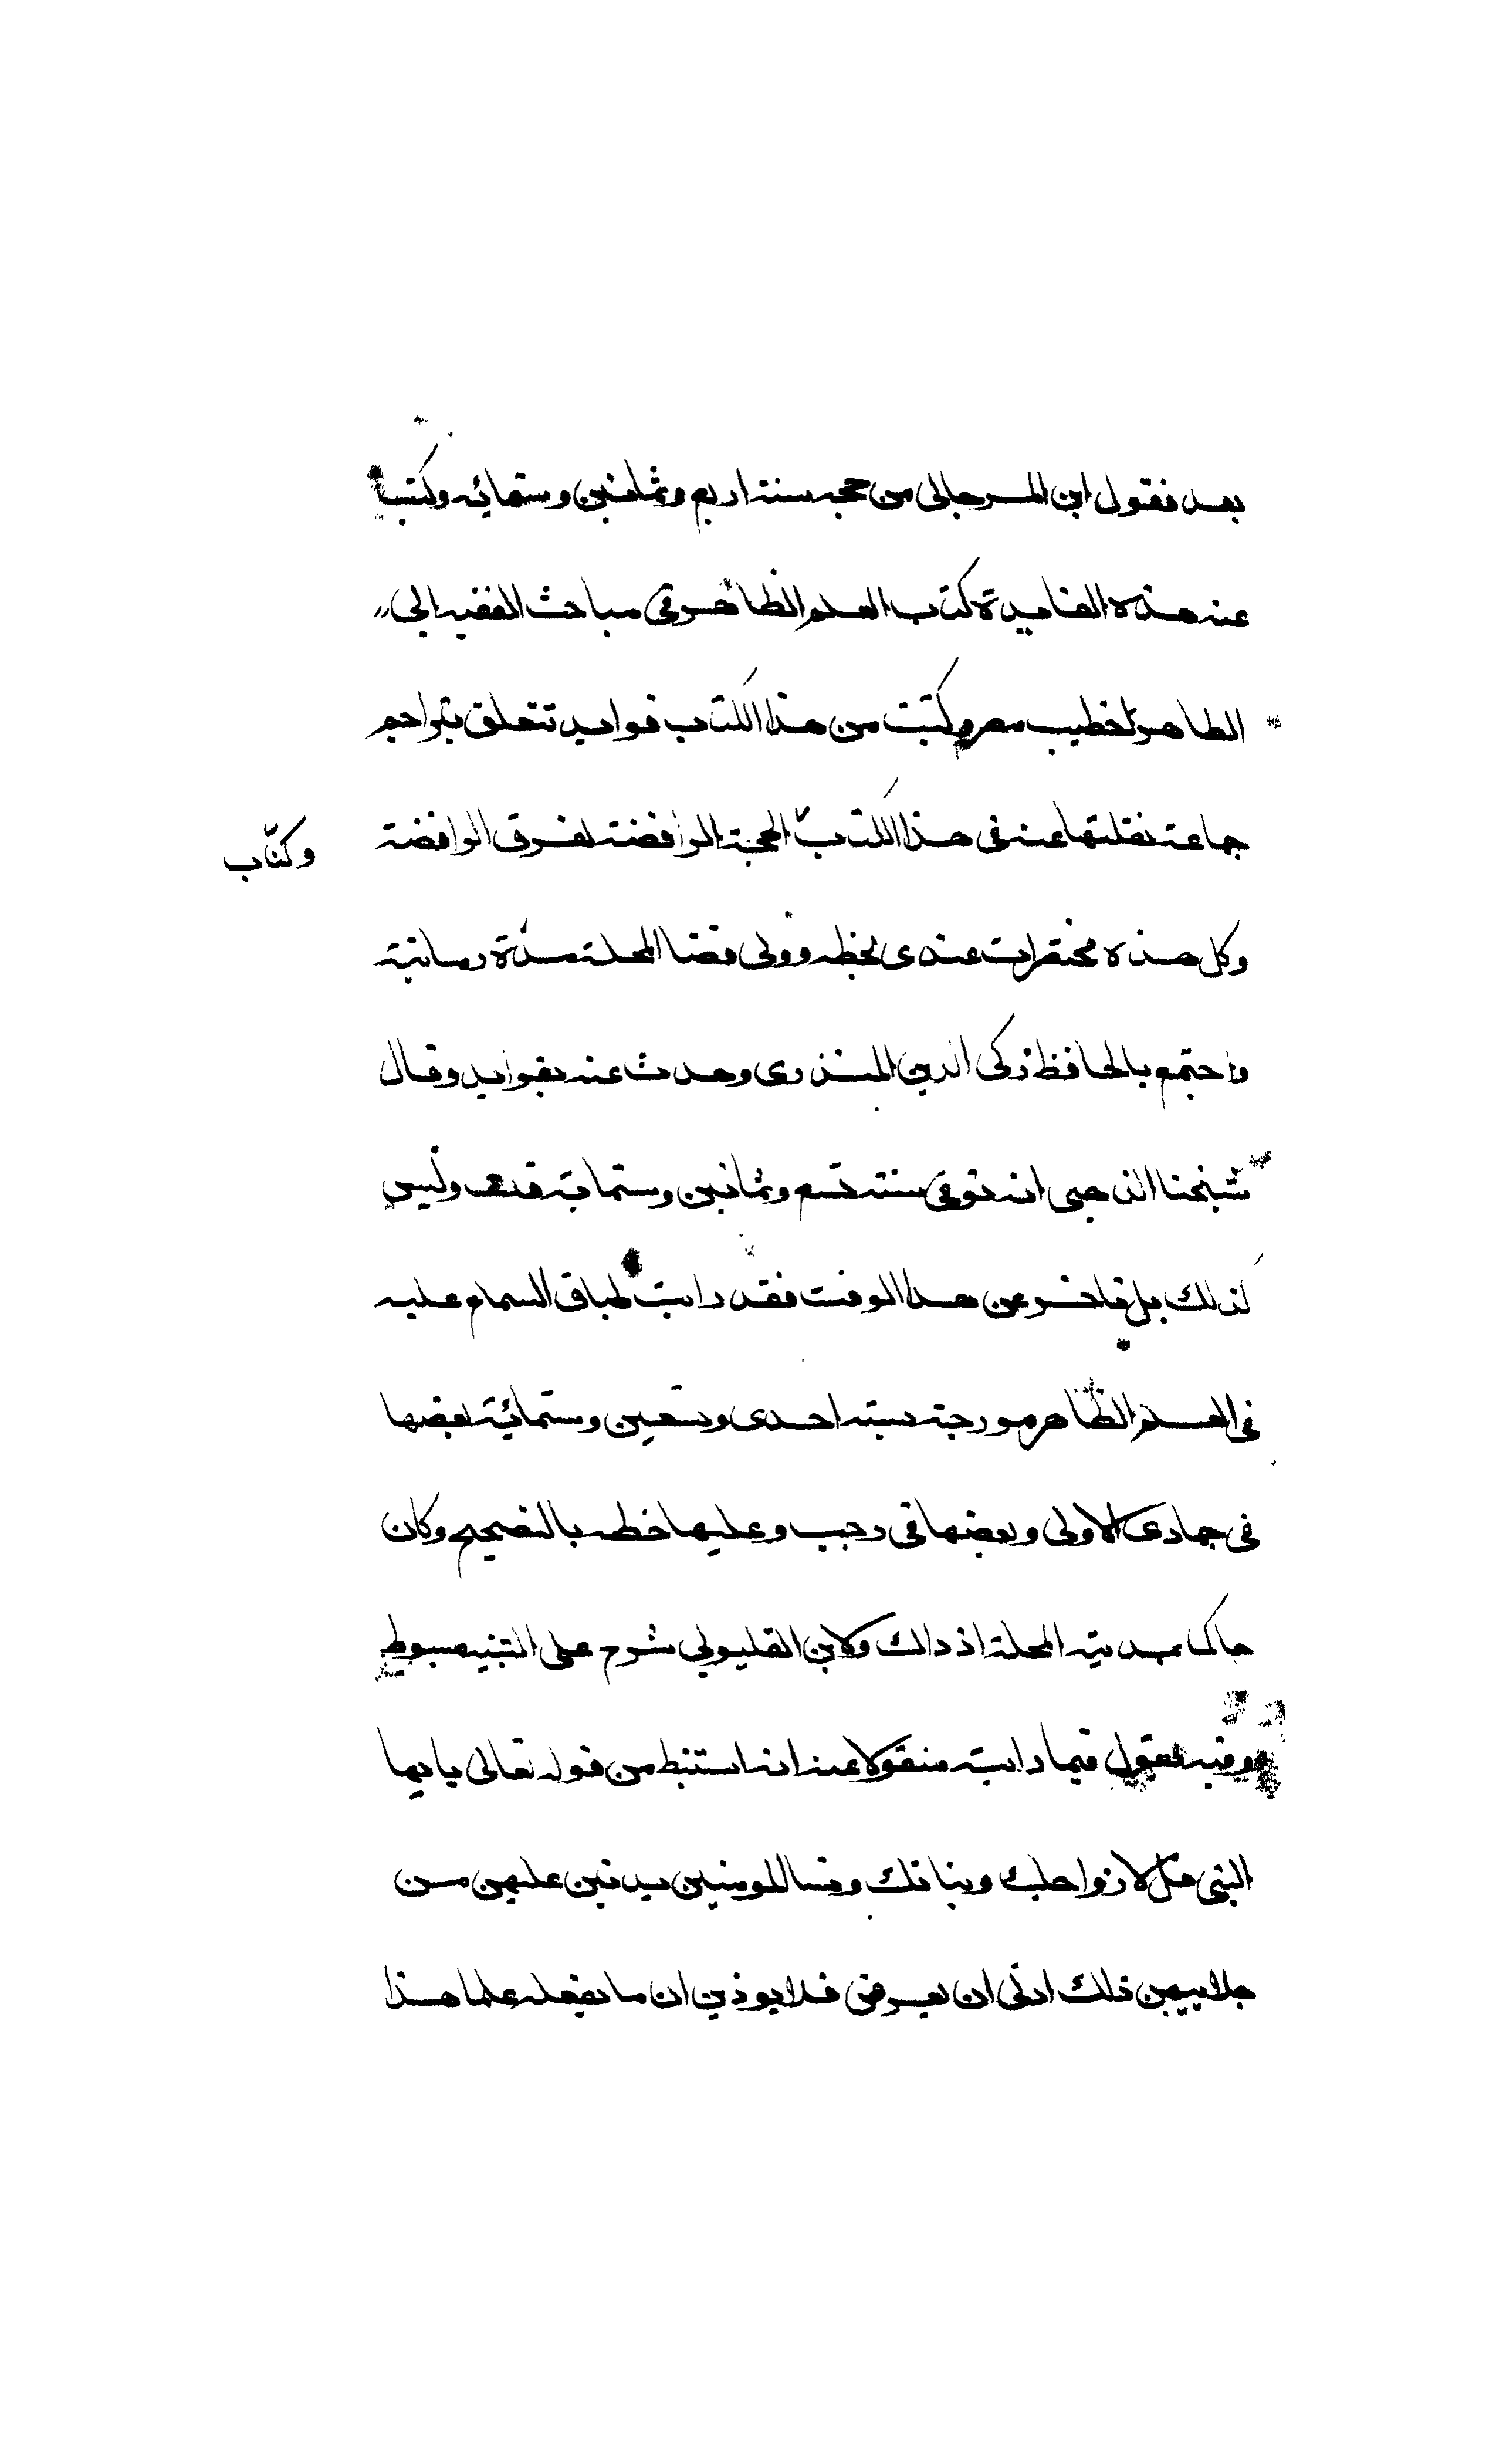 بعد نقول ابن المرجالى من حجه سنة اربع وثمانين وستمائه وكتب
عنه هذه الفايدة كتاب العلم الظاهر فى مباحث الفقيه ابى
الطاهر خطيب مصر وكتبت من هذا الكتاب فوايد تتعلق بتراجم
جماعة نقلتها عنه فى هذا الكتاب الحجة الرافضة لفرق الرافضة
وكتاب
وكل هذه مختصرات عندى بخطه وولى قضا المحلة مدة زمانية
واجتمع بالحافظ زكى الدين المنذرى وحدث عنه بفوايد وقال
شيخنا الذهبى انه توفى سنة تسع وثمانين وستماية وليس
كذلك بل تاخر عن هذا الوقت فقد رايت طباق السماع عليه
فى العلم الظاهر مورخة بسنة احدى وتسعين وستمائية بعضها
فى جمادى الاولى وبعضها فى رجب وعليها خطه بالتصحيح وكان
حاكما بمدينة المحلة اذ ذاك ولابن القليوبي شرح على التنبيه مبسوط
وفيه يقول فيما رايته منقولا عنه انه استنبط من قوله تعالى يايها
النبى قل لازواجك وبناتك ونسا المومنين يدنين عليهن من
جلابيبهن ذلك ادنى ان يعرفن فلا يوذين ان ما يفعله علما هذا